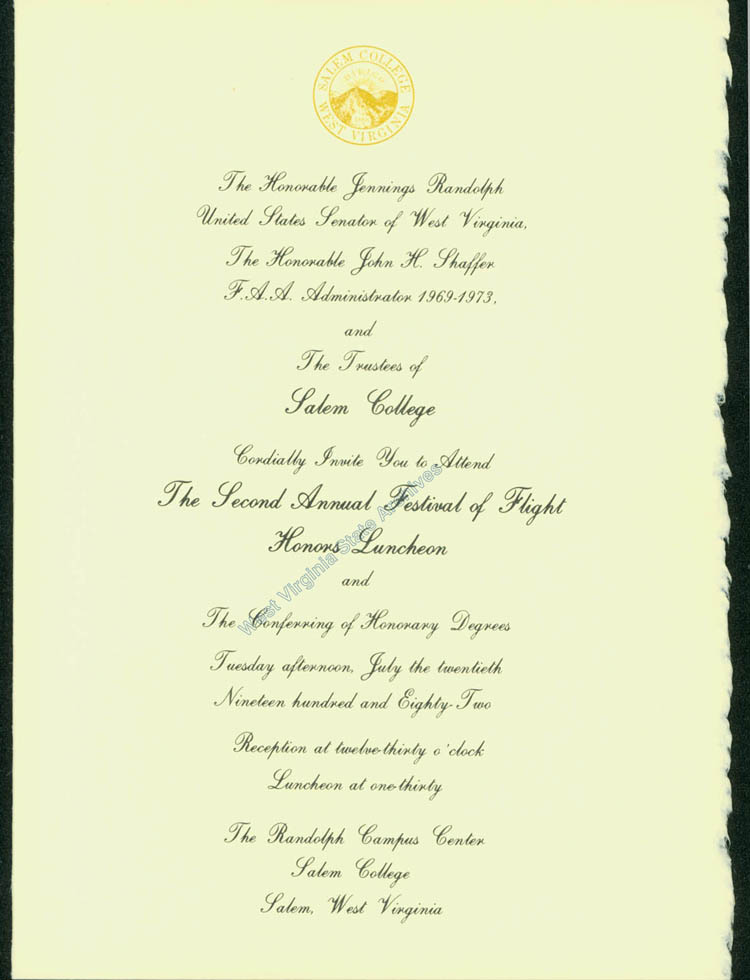 SALEM COLLEGE
WEST VIRGINIA
The Honorable Jennings Randolph
United States Senator of West Virginia,
The Honorable John H. Shaffer
F.A.A. Administrator 1969-1973,
and
The Trustees of
Salem College
Cordially Invite You to Attend
The Second Annual Festival of Flight
Honors Luncheon
and
The Conferring of Honorary Degrees
Tuesday afternoon, July the twentieth
Nineteen hundred and Eighty-Two
Reception at twelve-thirty o'clock
Luncheon at one-thirty
The Randolph Campus Center
Salem College
Salem, West Virginia
West Virginia State Archives